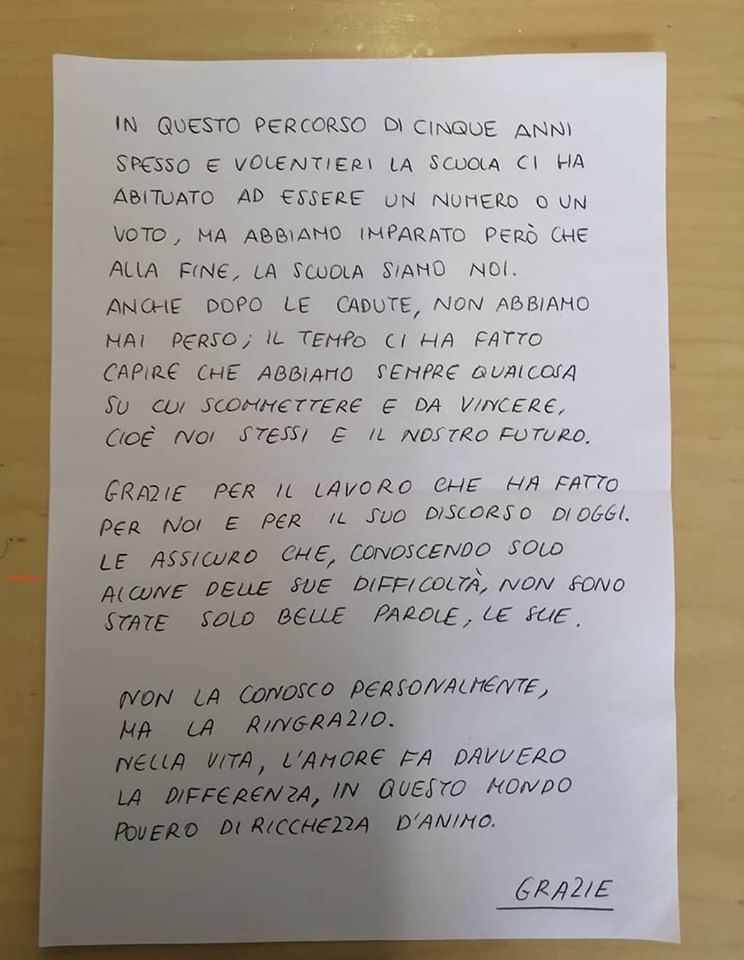 IN QUESTO PERCORSO DI CINQUE ANNI
SPESSO E VOLENTIERI LA SCUOLA CI HA
ABITUATO AD ESSERE UN NUMERO O UN
VOTO, MA ABBIAMO IMPARATO PERÒ CHE
ALLA FINE, LA SCUOLA SIAMO NOI.
ANCHE DOPO LE CADUTE, NON ABBIAMO
MAI PERSO; IL TEMPO CI HA FATTO
CAPIRE CHE ABBIAMO SEMPRE QUALCOSA
SU CUI SCOMMETTERE E DA VINCERE,
CIOÈ NOI STESSI E IL NOSTRO FUTURO.
GRAZIE PER IL LAVORO CHE HA FATTO
PER NOI E PER IL SUO DISCORSO DI OGGI.
LE ASSICURO CHE, CONOSCENDO SOLO
ALCUNE DELLE SUE DIFFICOLTÀ, NON SONO
STATE SOLO BELLE PAROLE, LE SUE.
NON LA CONOSCO PERSONALMENTE,
MA LA RINGRAZIO.
NELLA VITA, L'AMORE FA DAVVERO
LA DIFFERENZA, IN QUESTO MONDO
POVERO DI RICCHEZZA D'ANIMO.
GRAZIE